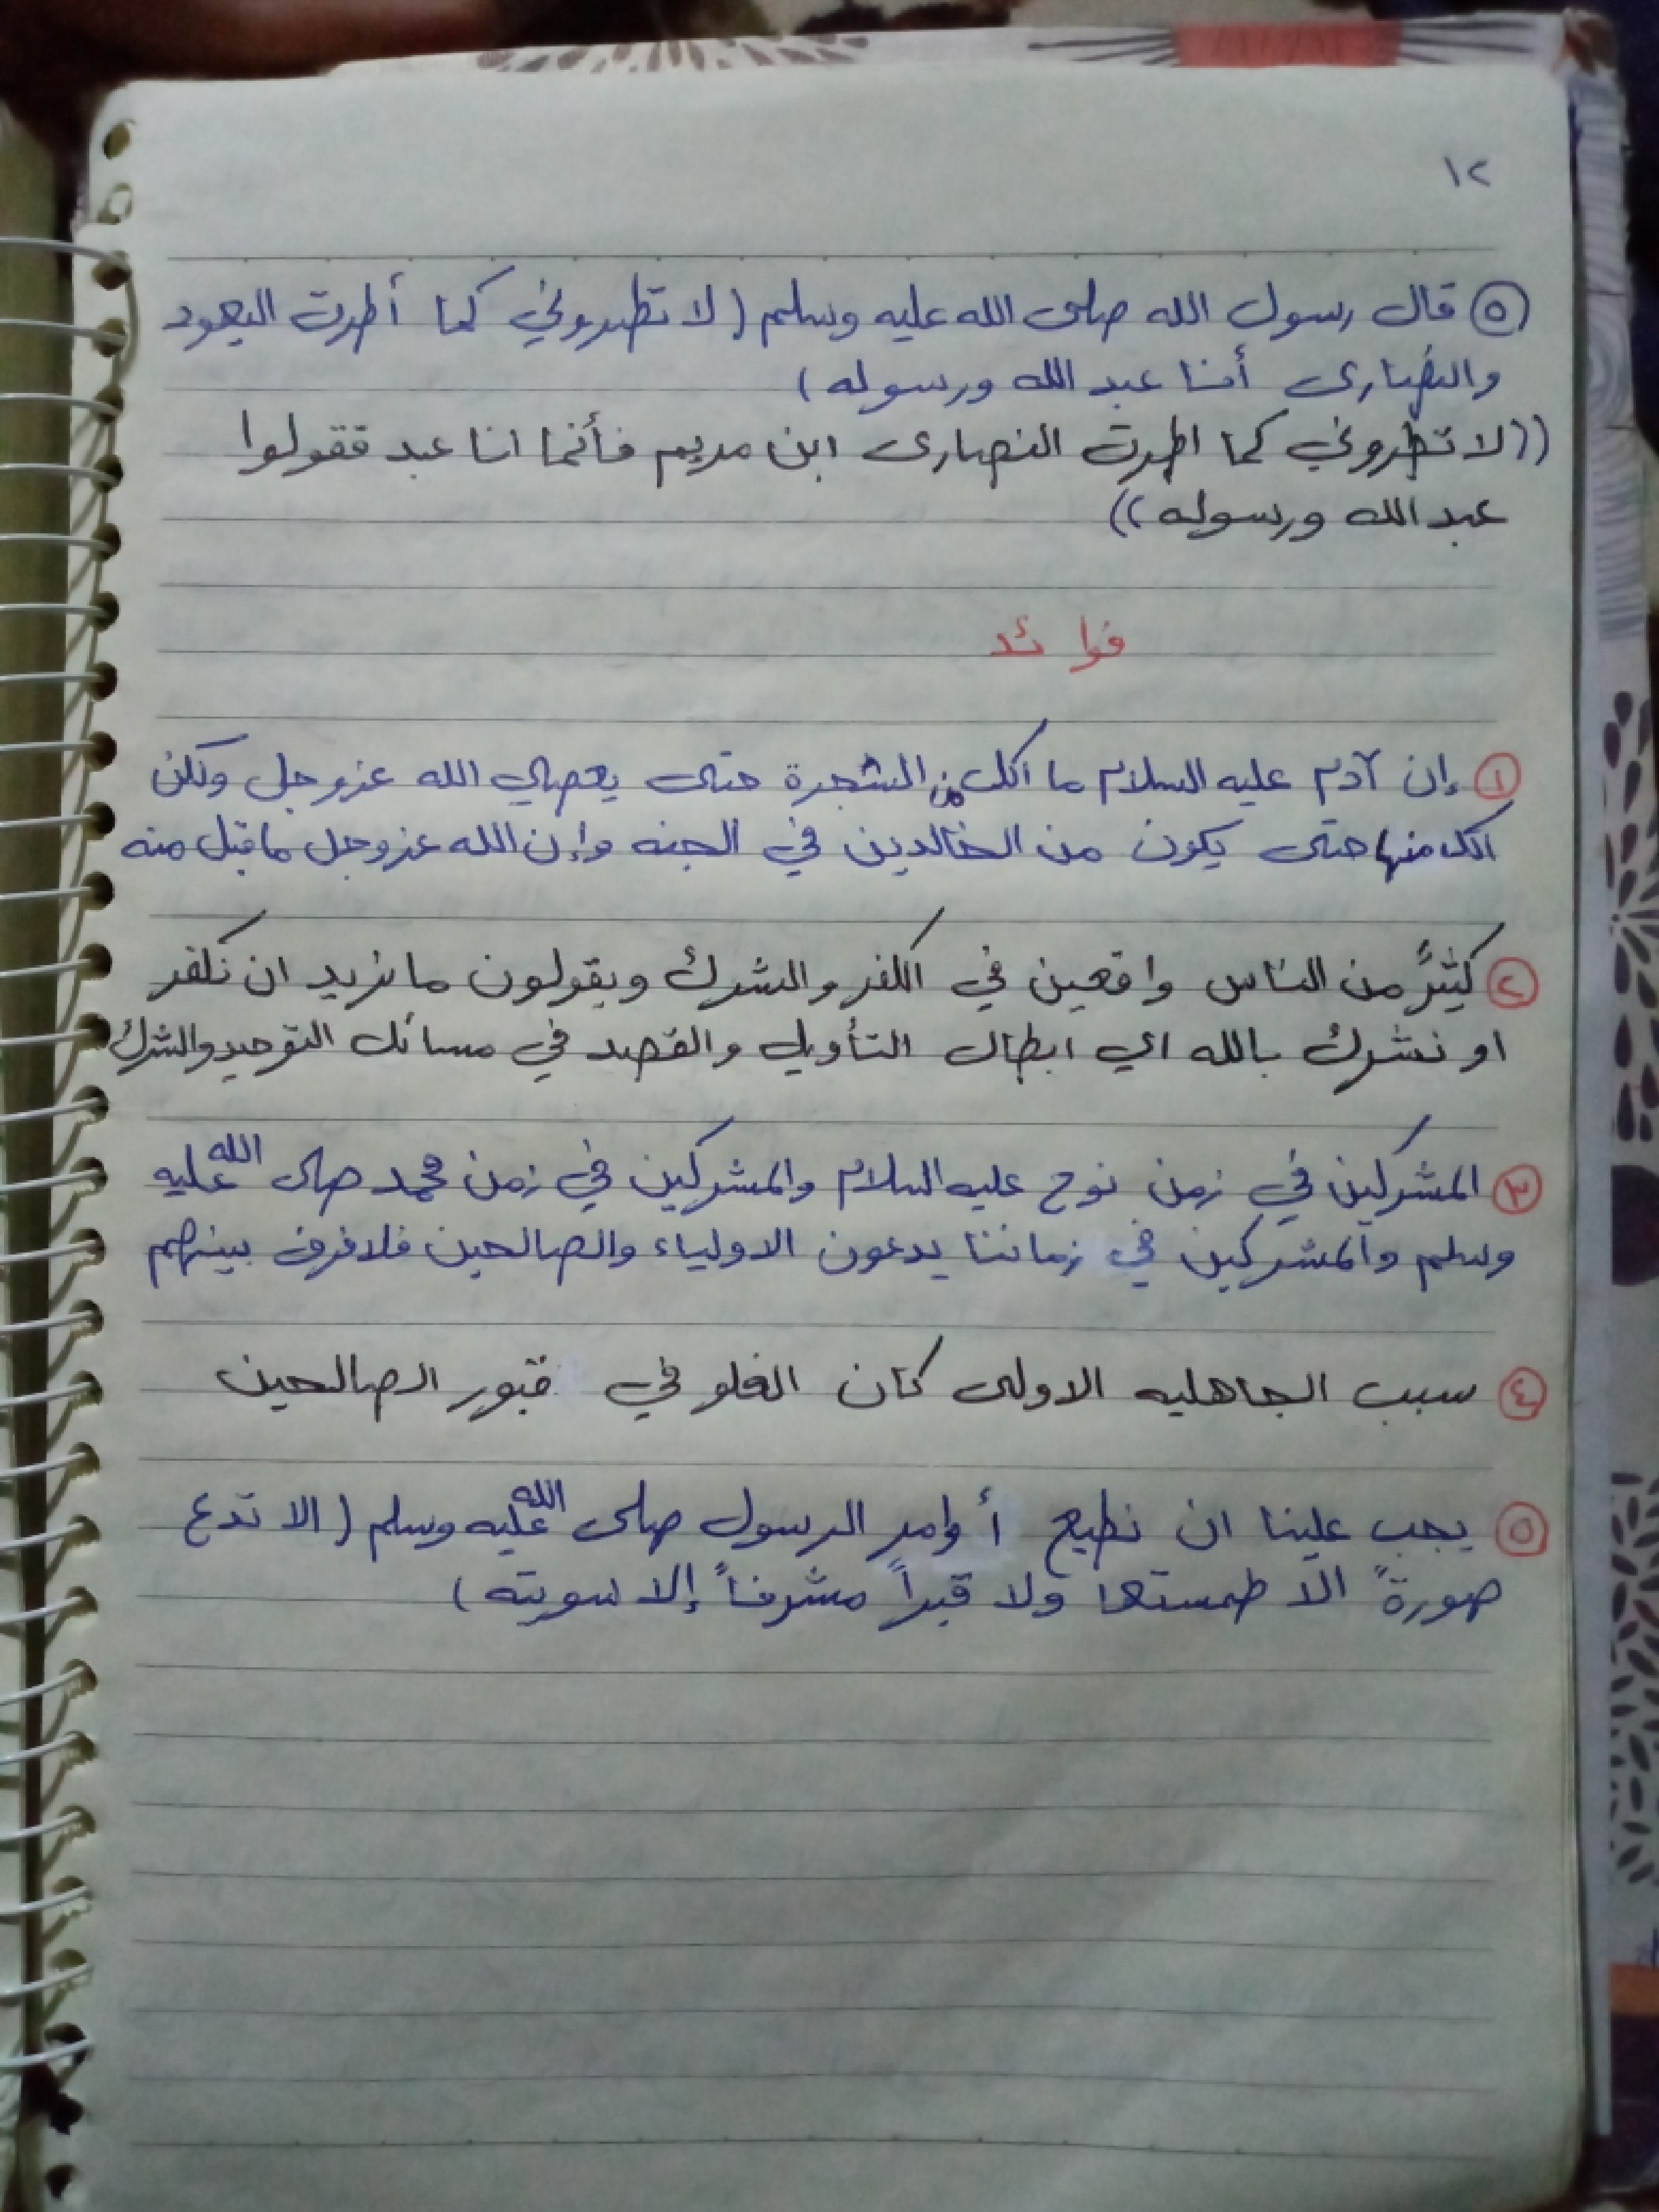 ١٢
٥ قال رسول الله صلى الله عليه وسلم (لا تطروني كما أطرت اليهود
والنصارى أنا عبد الله ورسوله)
((لا تطروني كما اطرت النصارى ابن مريم فأنما انا عبد فقولوا
عبد الله ورسوله))
فوائد
١ إن آدم عليه السلام ما اكل من الشجرة حتى يعصي الله عز وجل ولكن
اكل منها حتى يكون من الخالدين في الجنه وإن الله عز وجل ما قبل منه
٢ كثيرً من الناس واقعين في الكفر والشرك ويقولون ما نريد ان نكفر
او نشرك بالله اي ابطال التأويل والقصد في مسائل التوحيد والشرك
٣ المشركين في زمن نوح عليه السلام والمشركين في زمن محمد صلى الله عليه
وسلم والمشركين في زماننا يدعون الاولياء والصالحين فلا فرق بينهم
٤ سبب الجاهليه الاولى كان الغلو في قبور الصالحين
٥ يجب علينا ان نطيع أوامر الرسول صلى الله عليه وسلم (الا تدع
صورةً الا طمستها ولا قبراً مشرفاً إلا سويته)